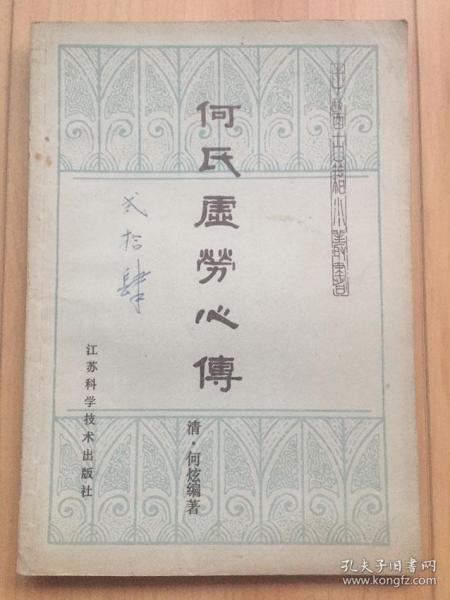 中医古籍小丛书
何氏虚劳心傳
清·何炫编著
贰拾肆
江苏科学技术出版社
孔夫子旧书网
www.kongfz.com